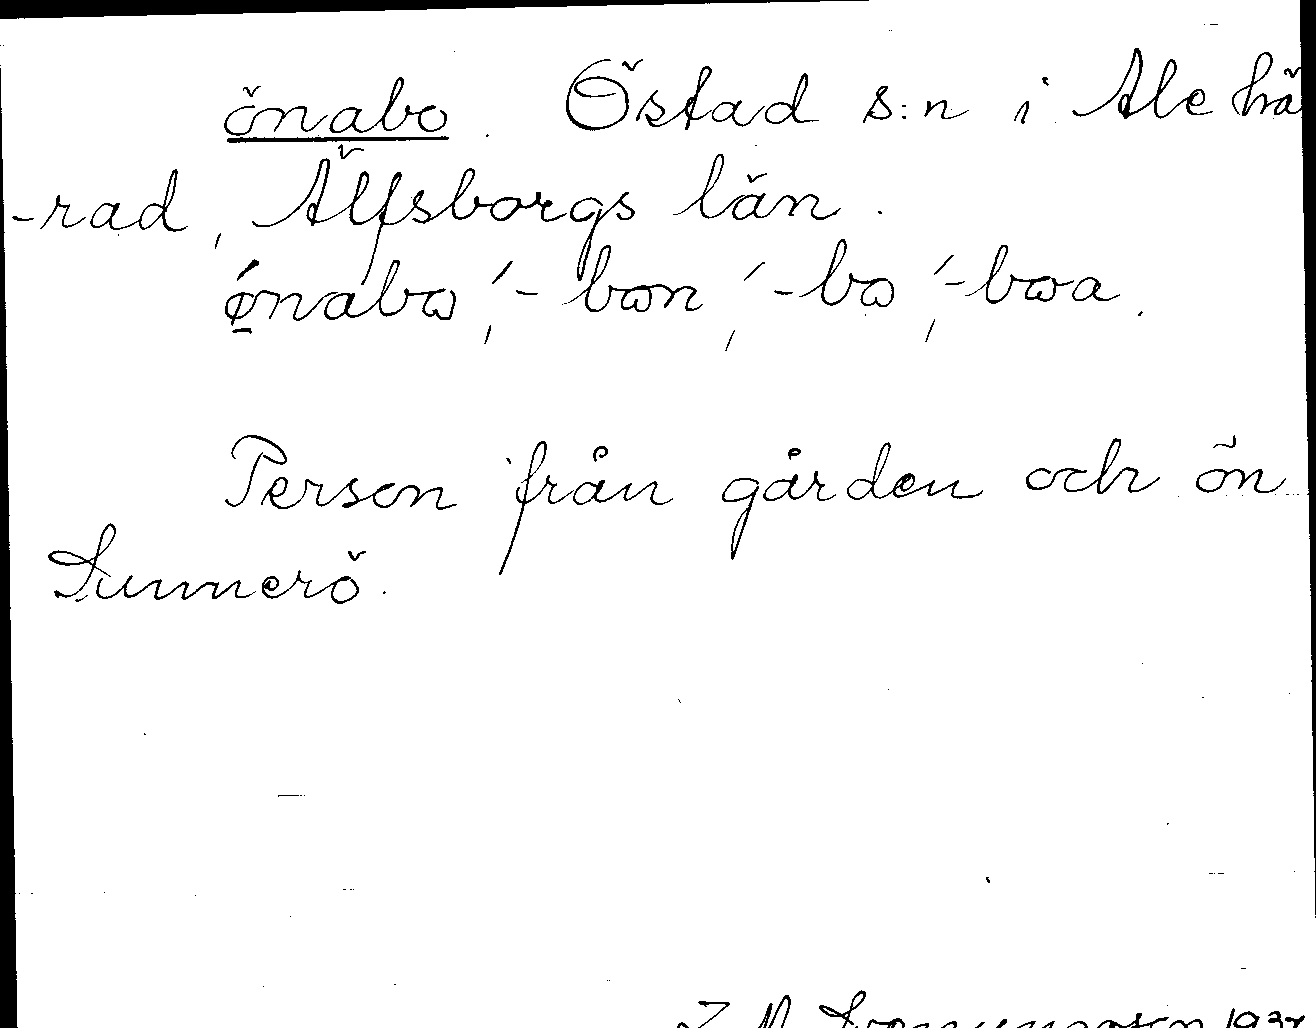 önabo. Östad s:n i Ale hä
-rad, Älfsborgs län.
ǿnabω,́ -bωn,́ -bω,́ -bωa.
Person från gården och ön
Sunnerö.
1937